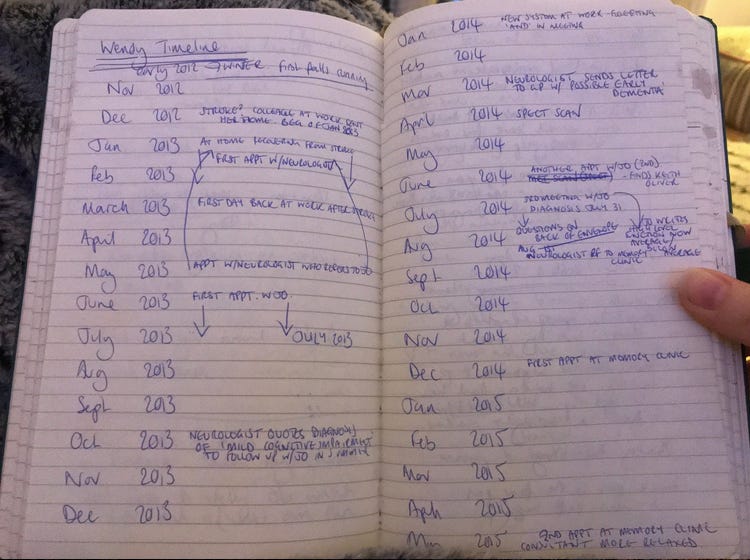 Wendy Timeline
early 2012 → WINTER. First falls running
Nov 2012
Dec 2012 STROKE? COLLEAGUE AT WORK SENT
HER HOME. BEG OF JAN 2013
Jan 2013 AT HOME RECOVERING FROM STROKE
FIRST APPT W/NEUROLOGIST
Feb 2013
March 2013 FIRST DAY BACK AT WORK AFTER STROKE
April 2013
May 2013 APPT W/NEUROLOGIST WHO REFERS TO JO
June 2013 FIRST APPT. W/JO.
July 2013 JULY 2013
Aug 2013
Sept 2013
Oct 2013 NEUROLOGIST QUOTES DIAGNOSIS
OF 'MILD COGNITIVE IMPAIRMENT'
TO FOLLOW UP W/JO IN
Nov 2013
Dec 2013
Jan 2014 NEW SYSTEM AT WORK - FORGETTING
'AND' IN MEETING
Feb 2014
Mar 2014 NEUROLOGIST SENDS LETTER
TO GP W/ POSSIBLE EARLY
DEMENTIA
April 2014 SPECT SCAN
May 2014
June 2014 ANOTHER APPT W/JO (2ND)
- FINDS KEITH
OLIVER
July 2014 3RD MEETING W/JO
DIAGNOSIS JULY 31
Aug 2014 QUESTIONS ON
BACK OF ENVELOPE
JO WRITES
HIGH LEVEL
FUNCTION NOW
AVERAGE/
BELOW
AVERAGE
AUG
NEUROLOGIST REF TO MEMORY
CLINIC
Sept 2014
Oct 2014
Nov 2014
Dec 2014 FIRST APPT AT MEMORY CLINIC
Jan 2015
Feb 2015
Mar 2015
April 2015
May 2015 2ND APPT AT MEMORY CLINIC
CONSULTANT MORE RELAXED